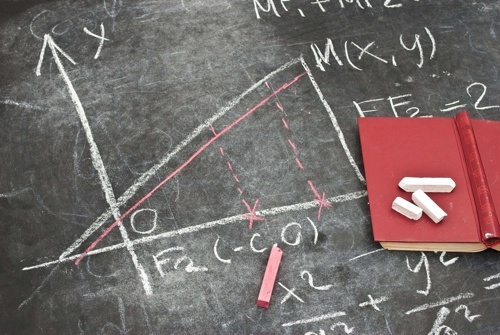 MF₁ + MF₂
y
M(x, y)
FF₂ = 2
O
F₂ (-c 0)
x² + y²